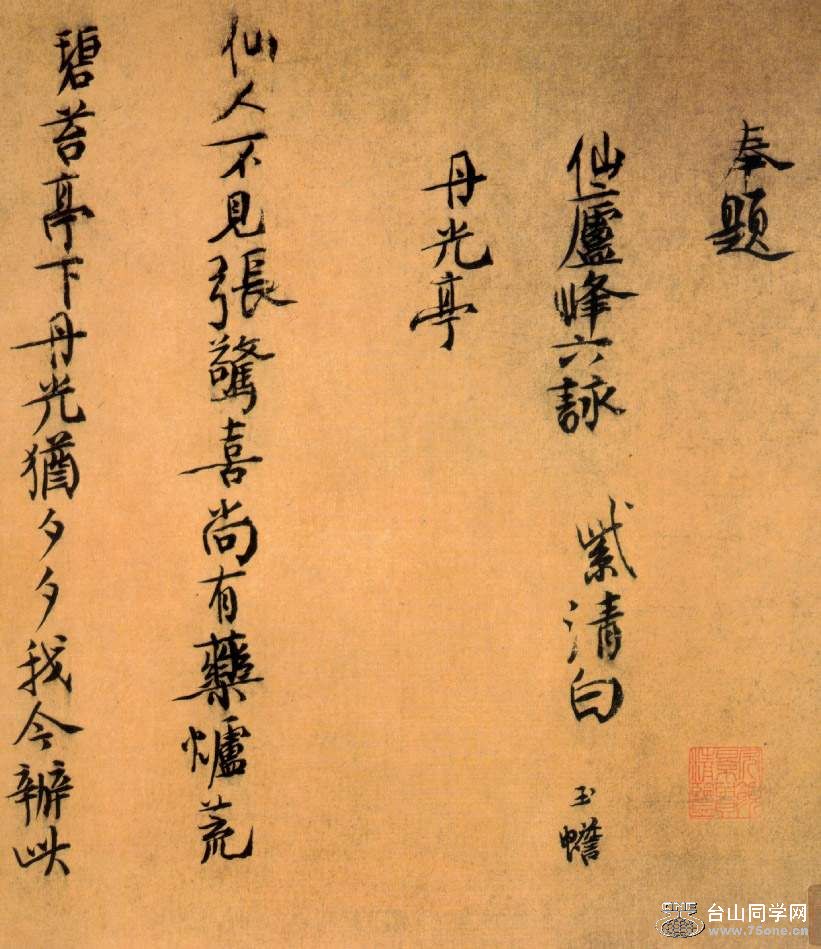 奉題
仙廬峰六詠 紫清白玉蟾
丹光亭
仙人不見張驚喜尚有藥爐荒
碧苔亭下丹光猶夕夕我今辦此
台山同学网
www.75one.cn